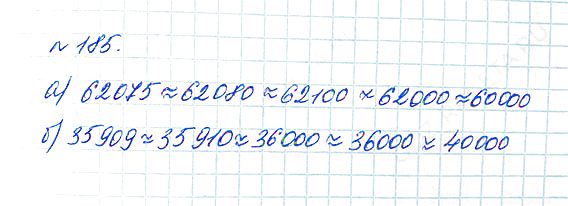 № 185.
а) 62075 ≈ 62080 ≈ 62100 ≈ 62000 ≈ 60000
б) 35909 ≈ 35910 ≈ 36000 ≈ 36000 ≈ 40000